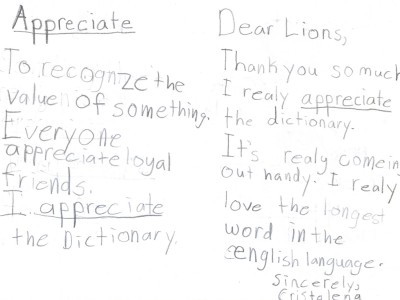 Appreciate
To recognize the
value of something.
Everyone
appreciate loyal
friends.
I appreciate
the Dictionary.
Dear Lions,
Thank you so much
I realy appreciate
the dictionary.
It's realy comein
out handy. I realy
love the longest
word in the
english language.
Sincerely,
Cristalena